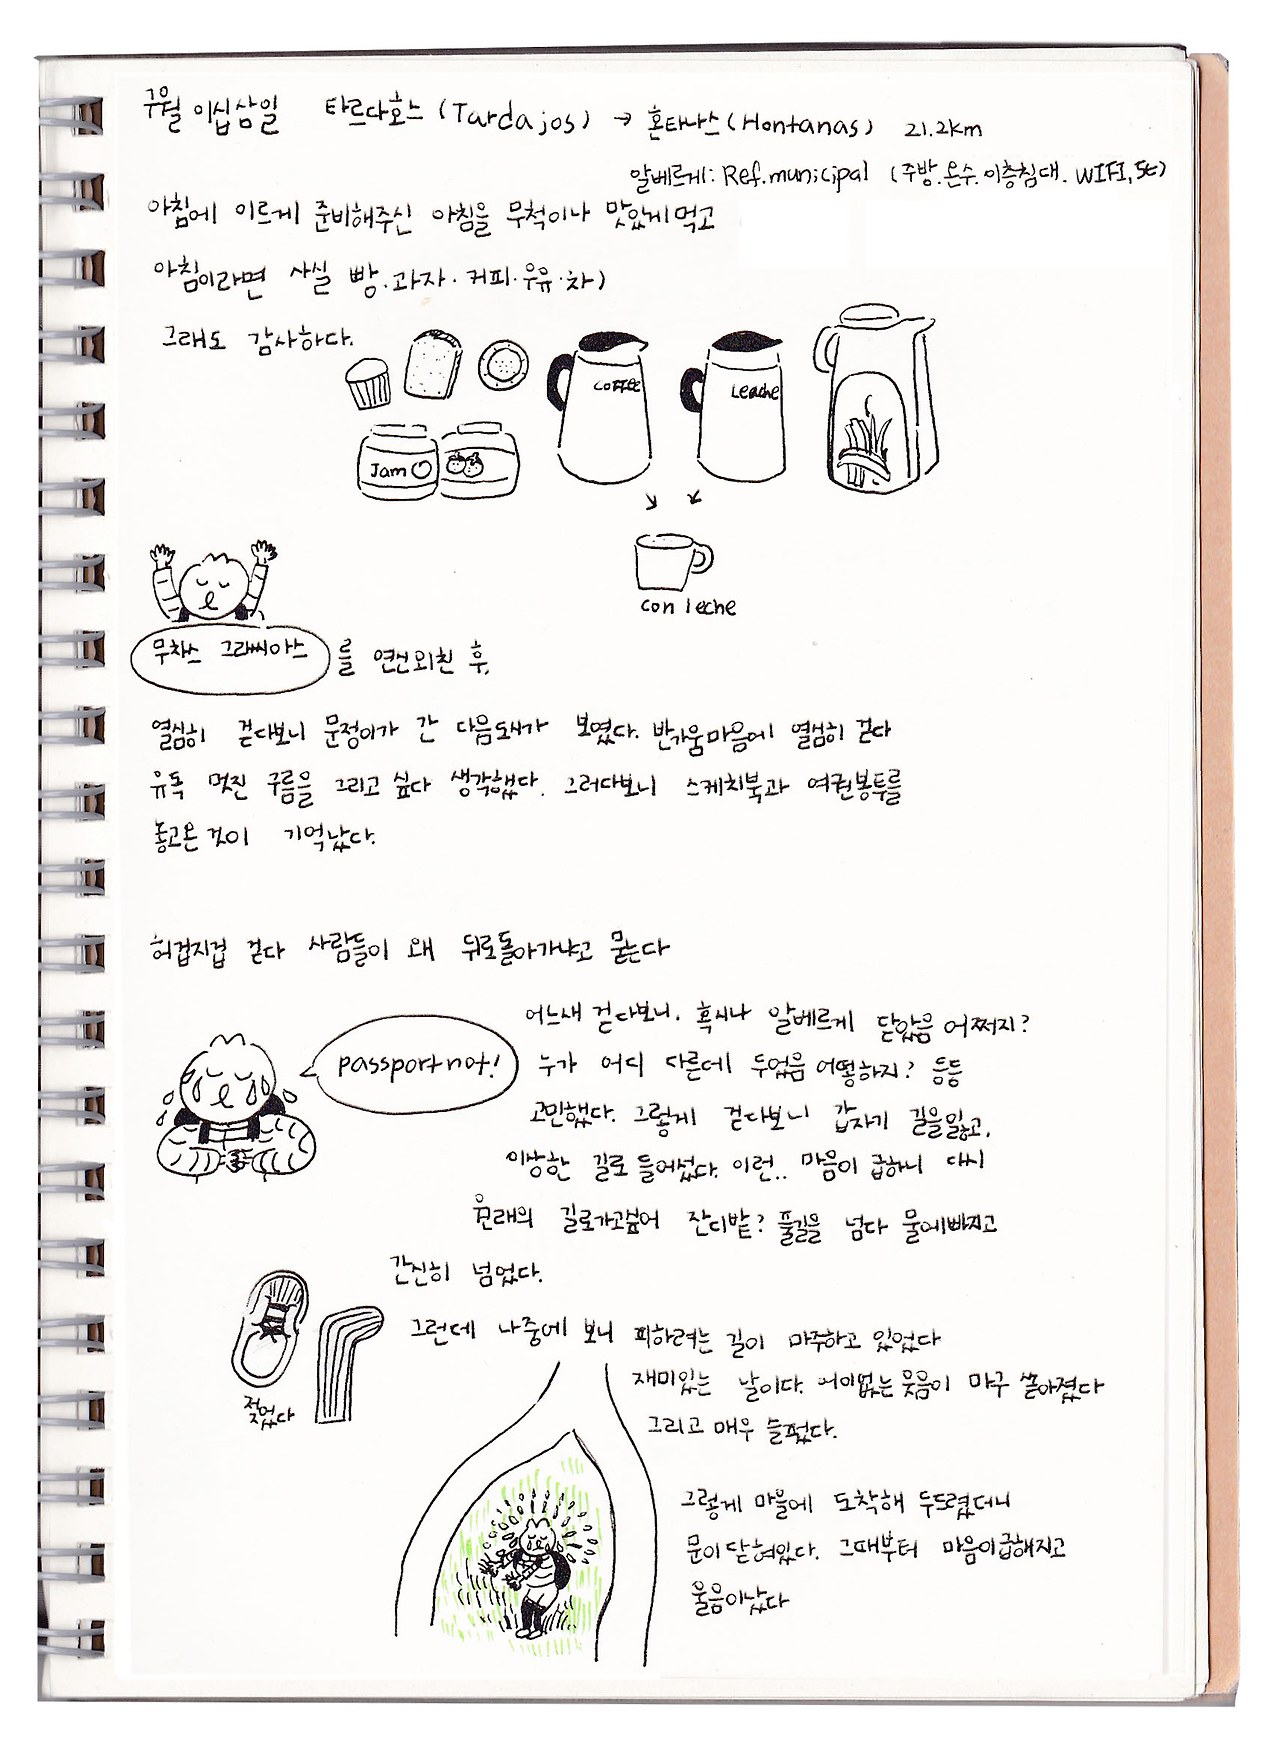 구월 이십삼일 타르다호스 (Tardajos) → 혼타나스 (Hontanas) 21.2km
알베르게: Ref.municipal (주방.온수.이층침대. WIFI, 5€)
아침에 이르게 준비해주신 아침을 무척이나 맛있게 먹고
아침이라면 사실 빵.과자.커피.우유.차)
그래도 감사하다.
COFFEE
Leache
Jam
con leche
무차스 그라씨아스 를 연신 외친 후,
열심히 걷다보니 문정이가 간 다음도시가 보였다. 반가운마음에 열심히 걷다
유독 멋진 구름을 그리고 싶다 생각했다. 그러다보니 스케치북과 여권봉투를
놓고온 것이 기억났다.
허겁지겁 걷다 사람들이 왜 뒤로돌아가냐고 묻는다
passport not!
어느새 걷다보니. 혹시나 알베르게 닫았음 어쩌지?
누가 어디 다른데 두었음 어떻하지? 등등
고민했다. 그렇게 걷다보니 갑자기 길을잃고,
이상한 길로 들어섰다. 이런.. 마음이 급하니 다시
원래의 길로가고싶어 잔디밭? 풀길을 넘다 물에빠지고
간신히 넘었다.
그런데 나중에 보니 피하려는 길이 마주하고 있었다
재미있는 날이다. 어이없는 웃음이 마구 쏟아졌다
그리고 매우 슬펐다.
젖었다
그렇게 마을에 도착해 두드렸더니
문이 닫혀있다. 그때부터 마음이급해지고
울음이났다